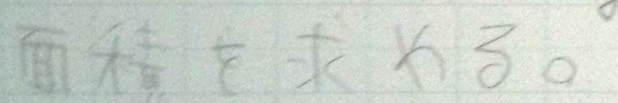 面積を求める。